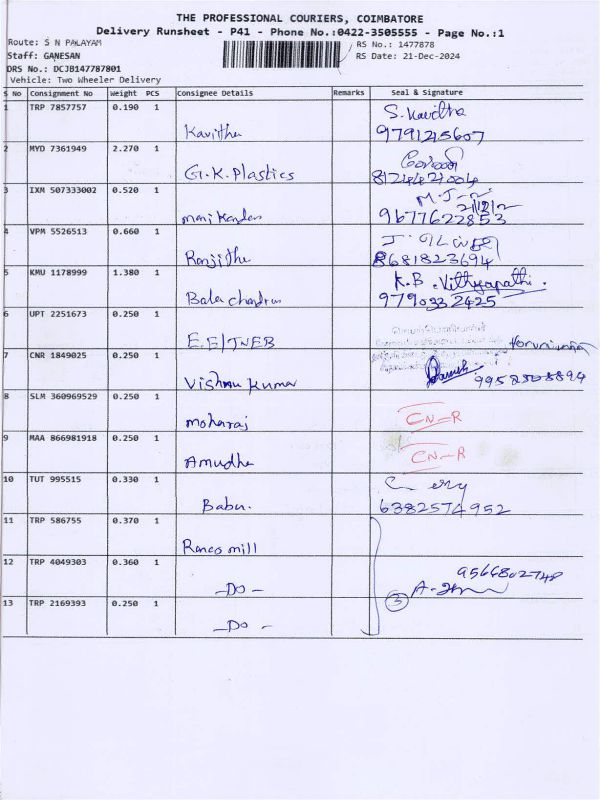 THE PROFESSIONAL COURIERS, COIMBATORE
Delivery Runsheet - P41 - Phone No.:0422-3505555 - Page No.:1
Route: S N PALAYAM
RS No.: 1477878
Staff: GANESAN
RS Date: 21-Dec-2024
DRS No.: DCJB147787801
Vehicle: Two Wheeler Delivery
S No Consignment No Weight PCS Consignee Details Remarks Seal & Signature
1 TRP 7857757 0.190 1
Kavitha
S. Kavitha
9791215607
2 MYD 7361949 2.270 1
G.K. Plastics
8124421004
3 IXM 507333002 0.520 1
manikandan
M.J
21/12/2
9677622853
4 VPM 5526513 0.660 1
Ranjitha
8681823694
5 KMU 1178999 1.380 1
Balachandran
K.B. Vithyapathi.
9790332425
6 UPT 2251673 0.250 1
E.E/TNEB
7 CNR 1849025 0.250 1
Vishnu kumar
9952508894
8 SLM 360969529 0.250 1
mohanraj
CN-R
9 MAA 866981918 0.250 1
Amudha
CN-R
10 TUT 995515 0.330 1
Babu.
6382574952
11 TRP 586755 0.370 1
Ranco mill
12 TRP 4049303 0.360 1
-Do-
9566802748
3
13 TRP 2169393 0.250 1
-Do-